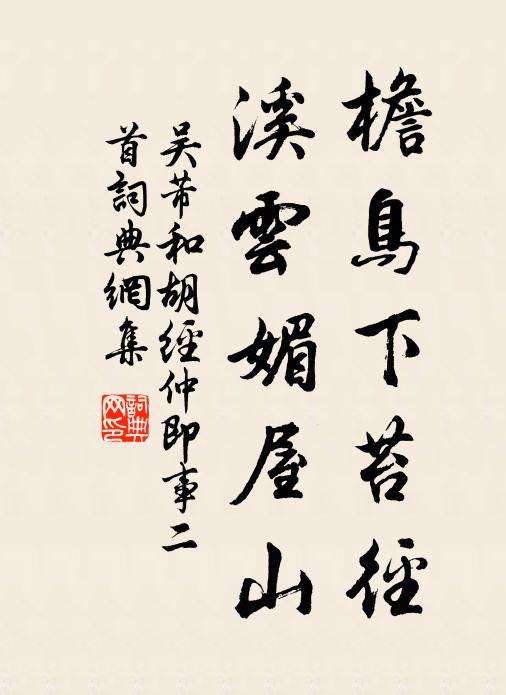 檐鳥下苔徑
溪雲媚屋山
吴芾和胡經仲即事二
首詞典網集
詞典
网印